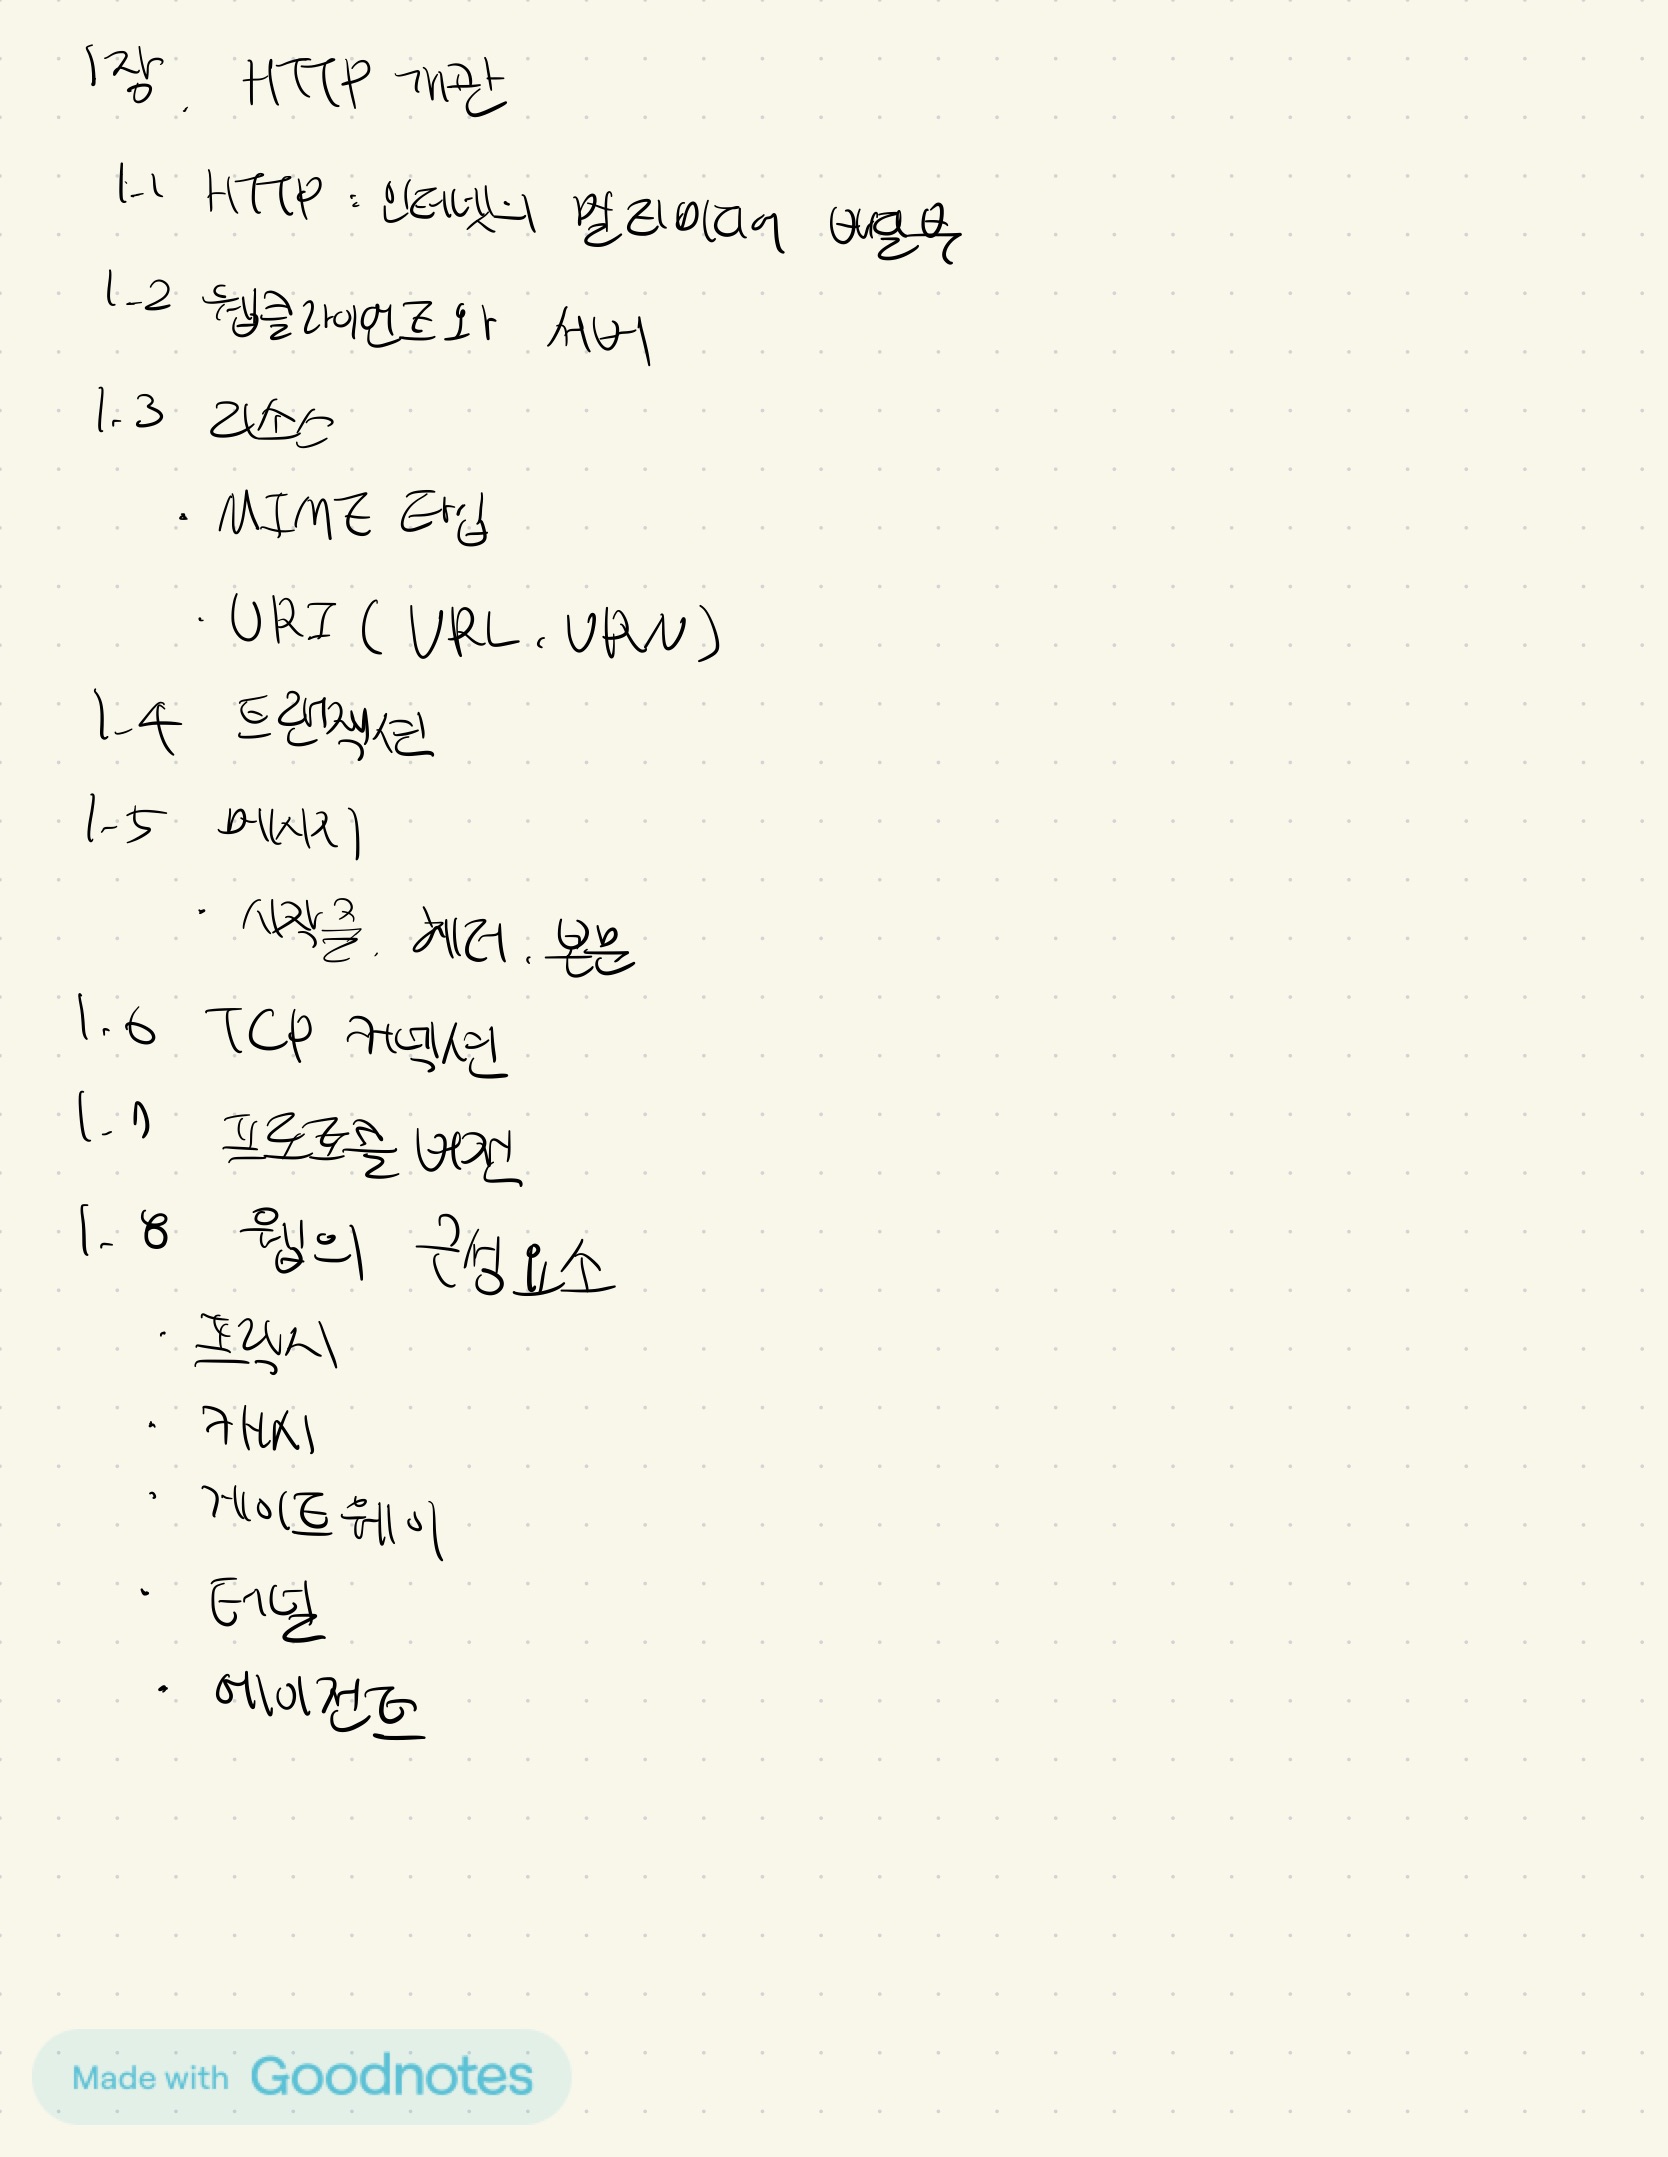 1장. HTTP 개관
1-1 HTTP : 인터넷의 멀티미디어 배달부
1-2 웹클라이언트와 서버
1-3 리소스
· MIME 타입
· URI ( URL, URN )
1-4 트랜잭션
1-5 메시지
· 시작줄, 헤더, 본문
1-6 TCP 커넥션
1-7 프로토콜 버전
1-8 웹의 구성요소
· 프락시
· 캐시
· 게이트웨이
· 터널
· 에이전트
Made with Goodnotes